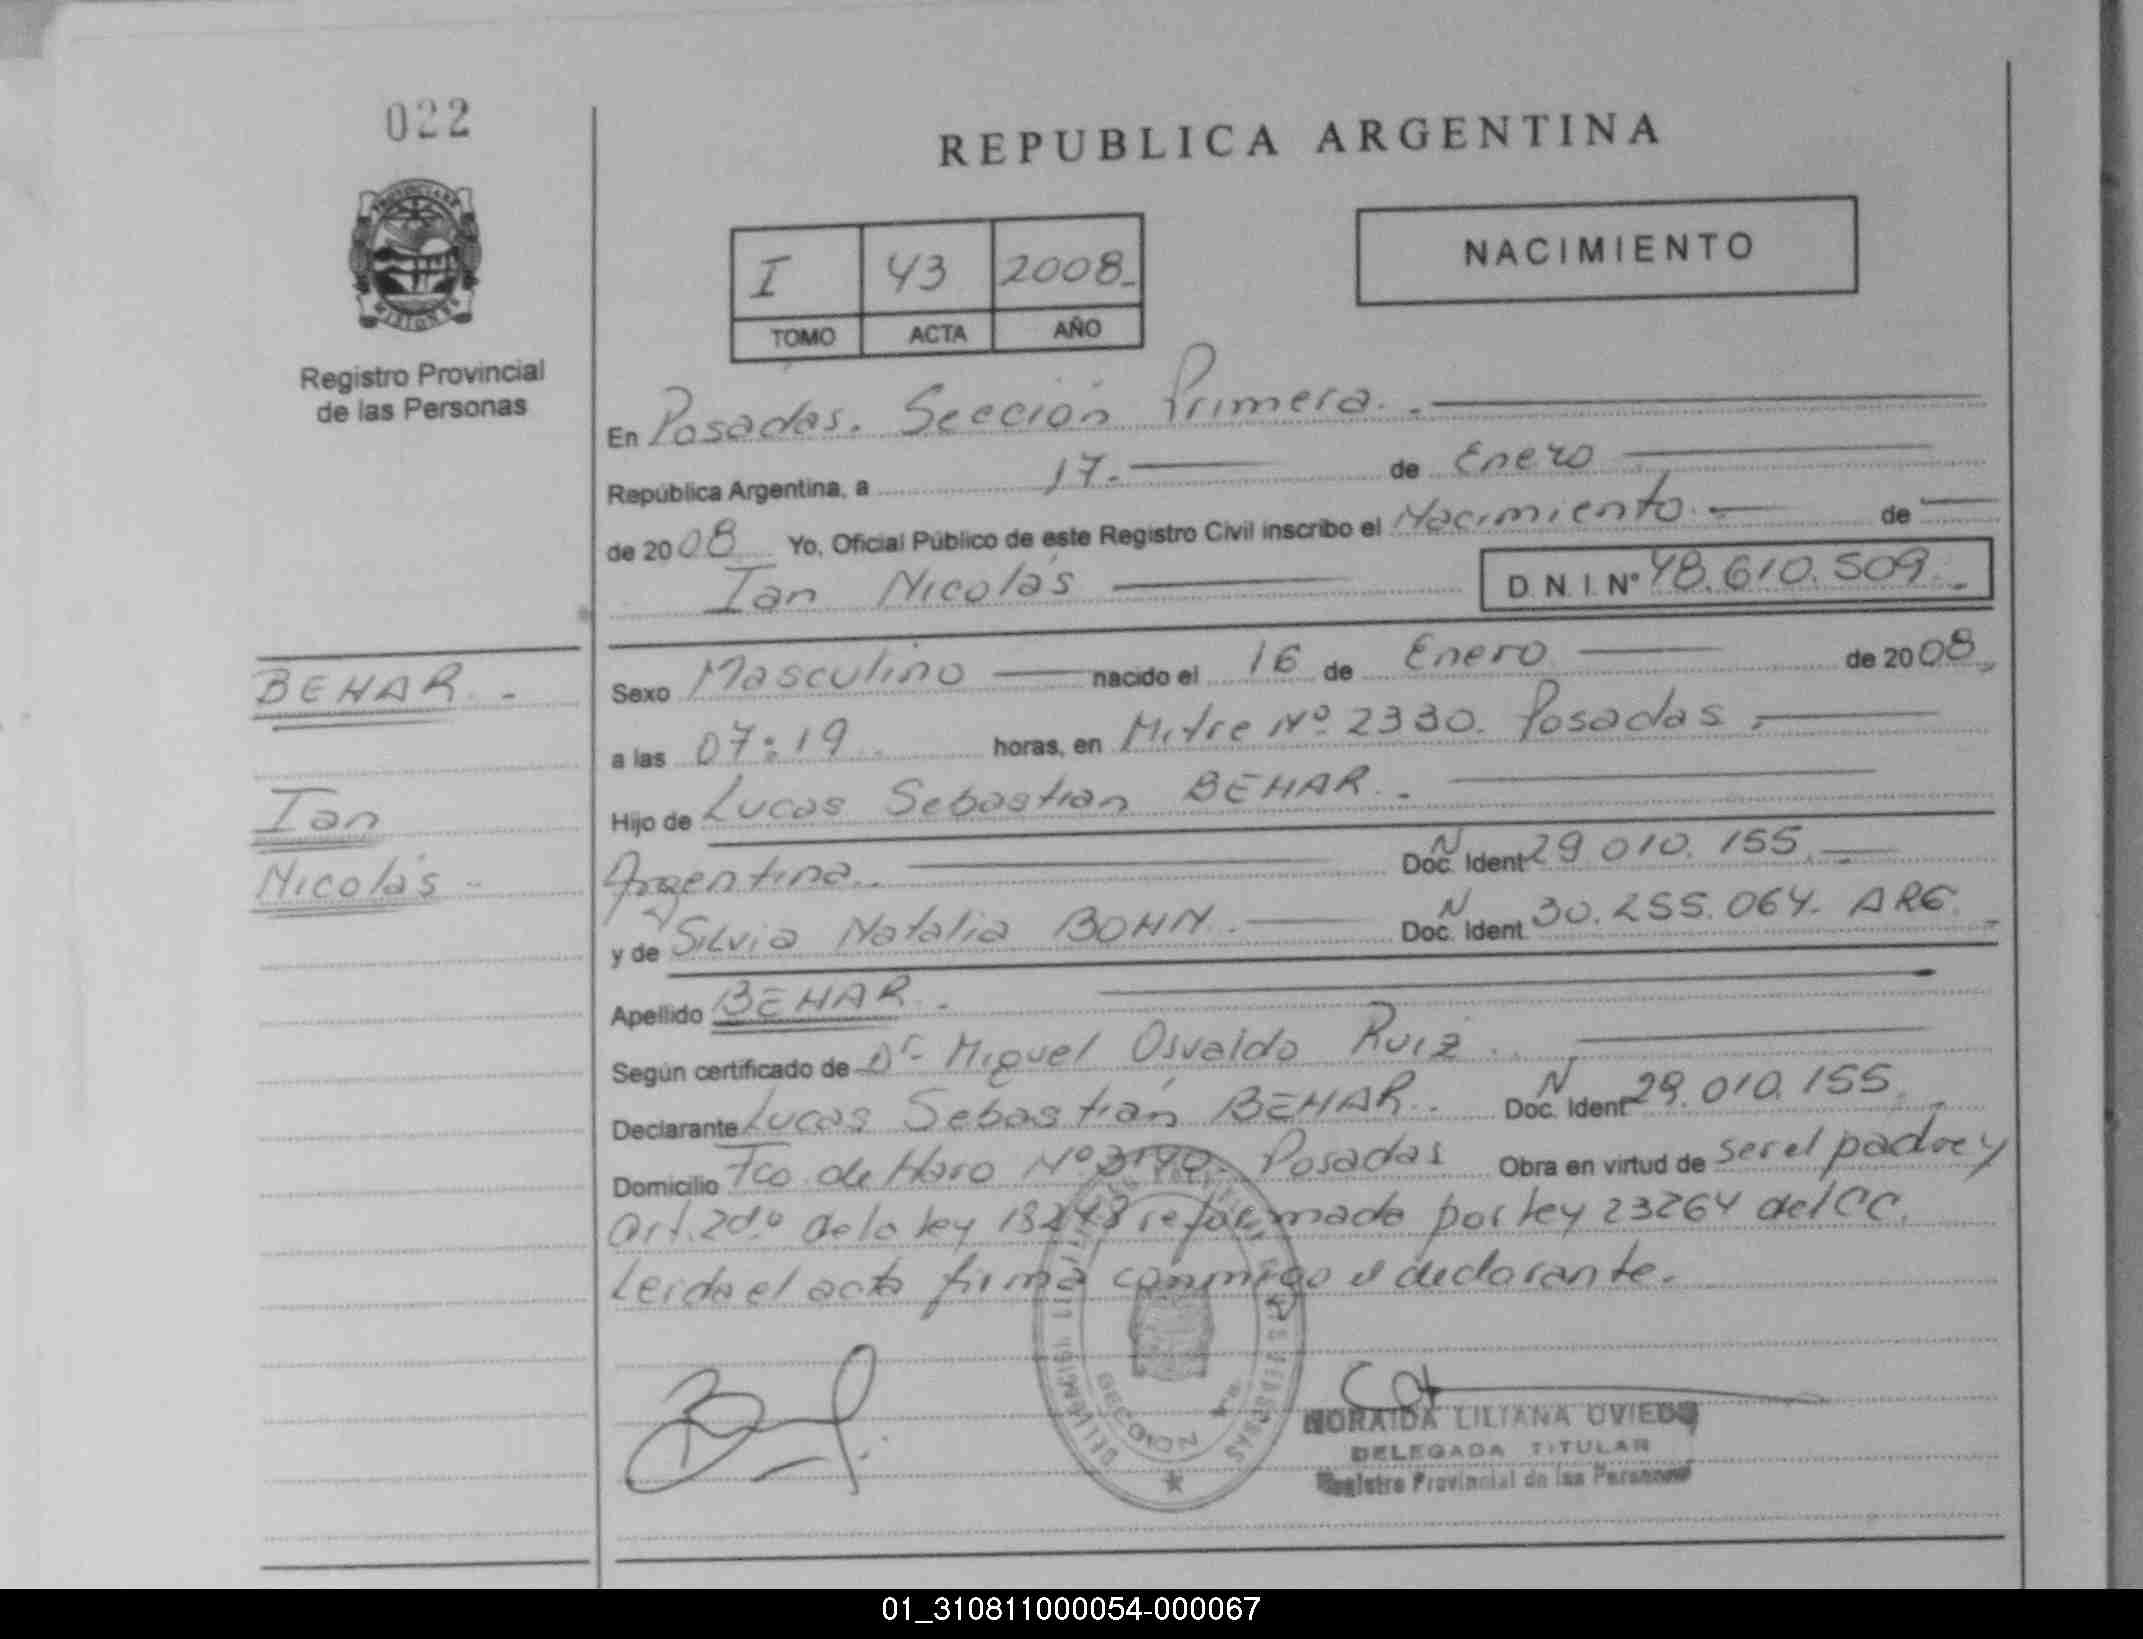 022
REPUBLICA ARGENTINA
NACIMIENTO
I 43 2008.
TOMO ACTA AÑO
Registro Provincial
de las Personas
En Posadas. Sección Primera.
República Argentina, a 17. de Enero
de 2008 Yo, Oficial Público de este Registro Civil inscribo el Nacimiento de
Ian Nicolás D.N.I. Nº 48.610.509.
BEHAR.
Ian
Nicolás
Sexo Masculino nacido el 16 de Enero de 2008
a las 07:19 horas, en Mitre Nº 2330. Posadas
Hijo de Lucas Sebastian BEHAR.
Argentina. Doc. Ident N 29.010.155
y de Silvia Natalia BOHN. Doc. Ident. N 30.255.064. ARG.
Apellido BEHAR.
Según certificado de Dr. Miguel Osvaldo Ruiz
Declarante Lucas Sebastián BEHAR. Doc. Ident N 29.010.155
Domicilio Fco. de Haro Nº Posadas Obra en virtud de ser el padre y
art. de la ley 18248 reformado por ley 23264 del CC.
Leida el acta firma conmigo el declarante.
SECCION
NORAIDA LILIANA OVIEDO
DELEGADA TITULAR
Registro Provincial de las Personas
01_310811000054-000067